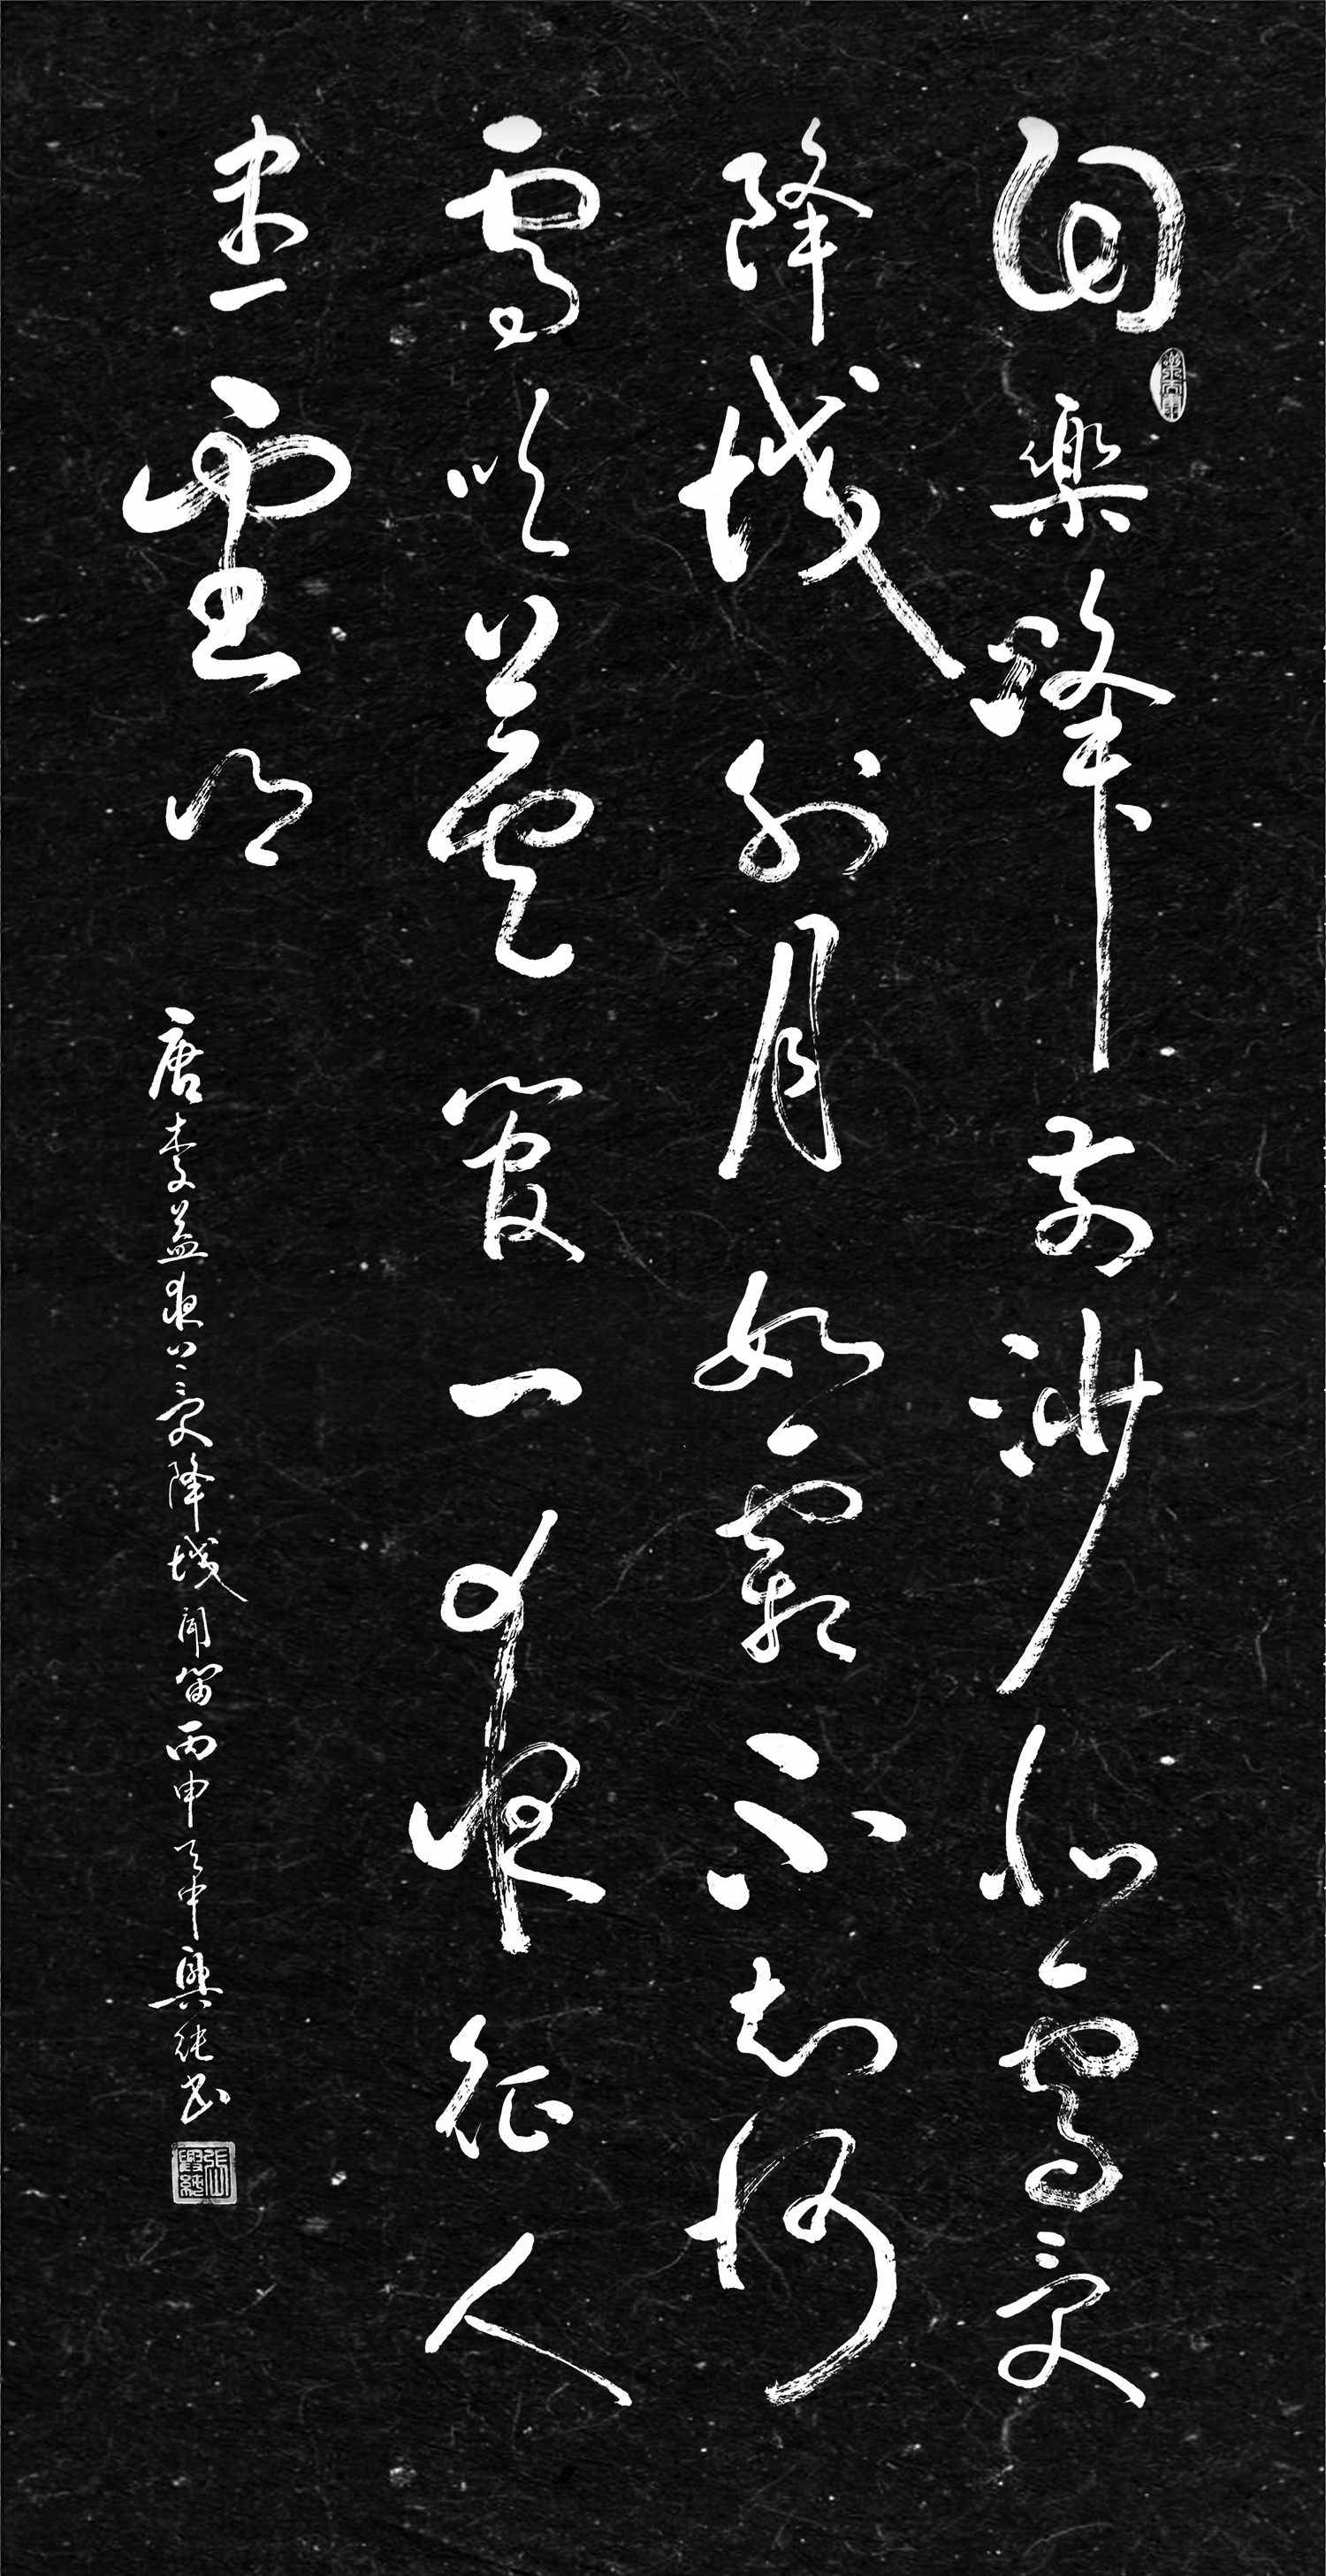 回樂峰前沙似雪受
降城外月如霜不知何
處吹蘆管一夜征人
盡望鄉
唐李益夜上受降城聞笛丙申天中興純書